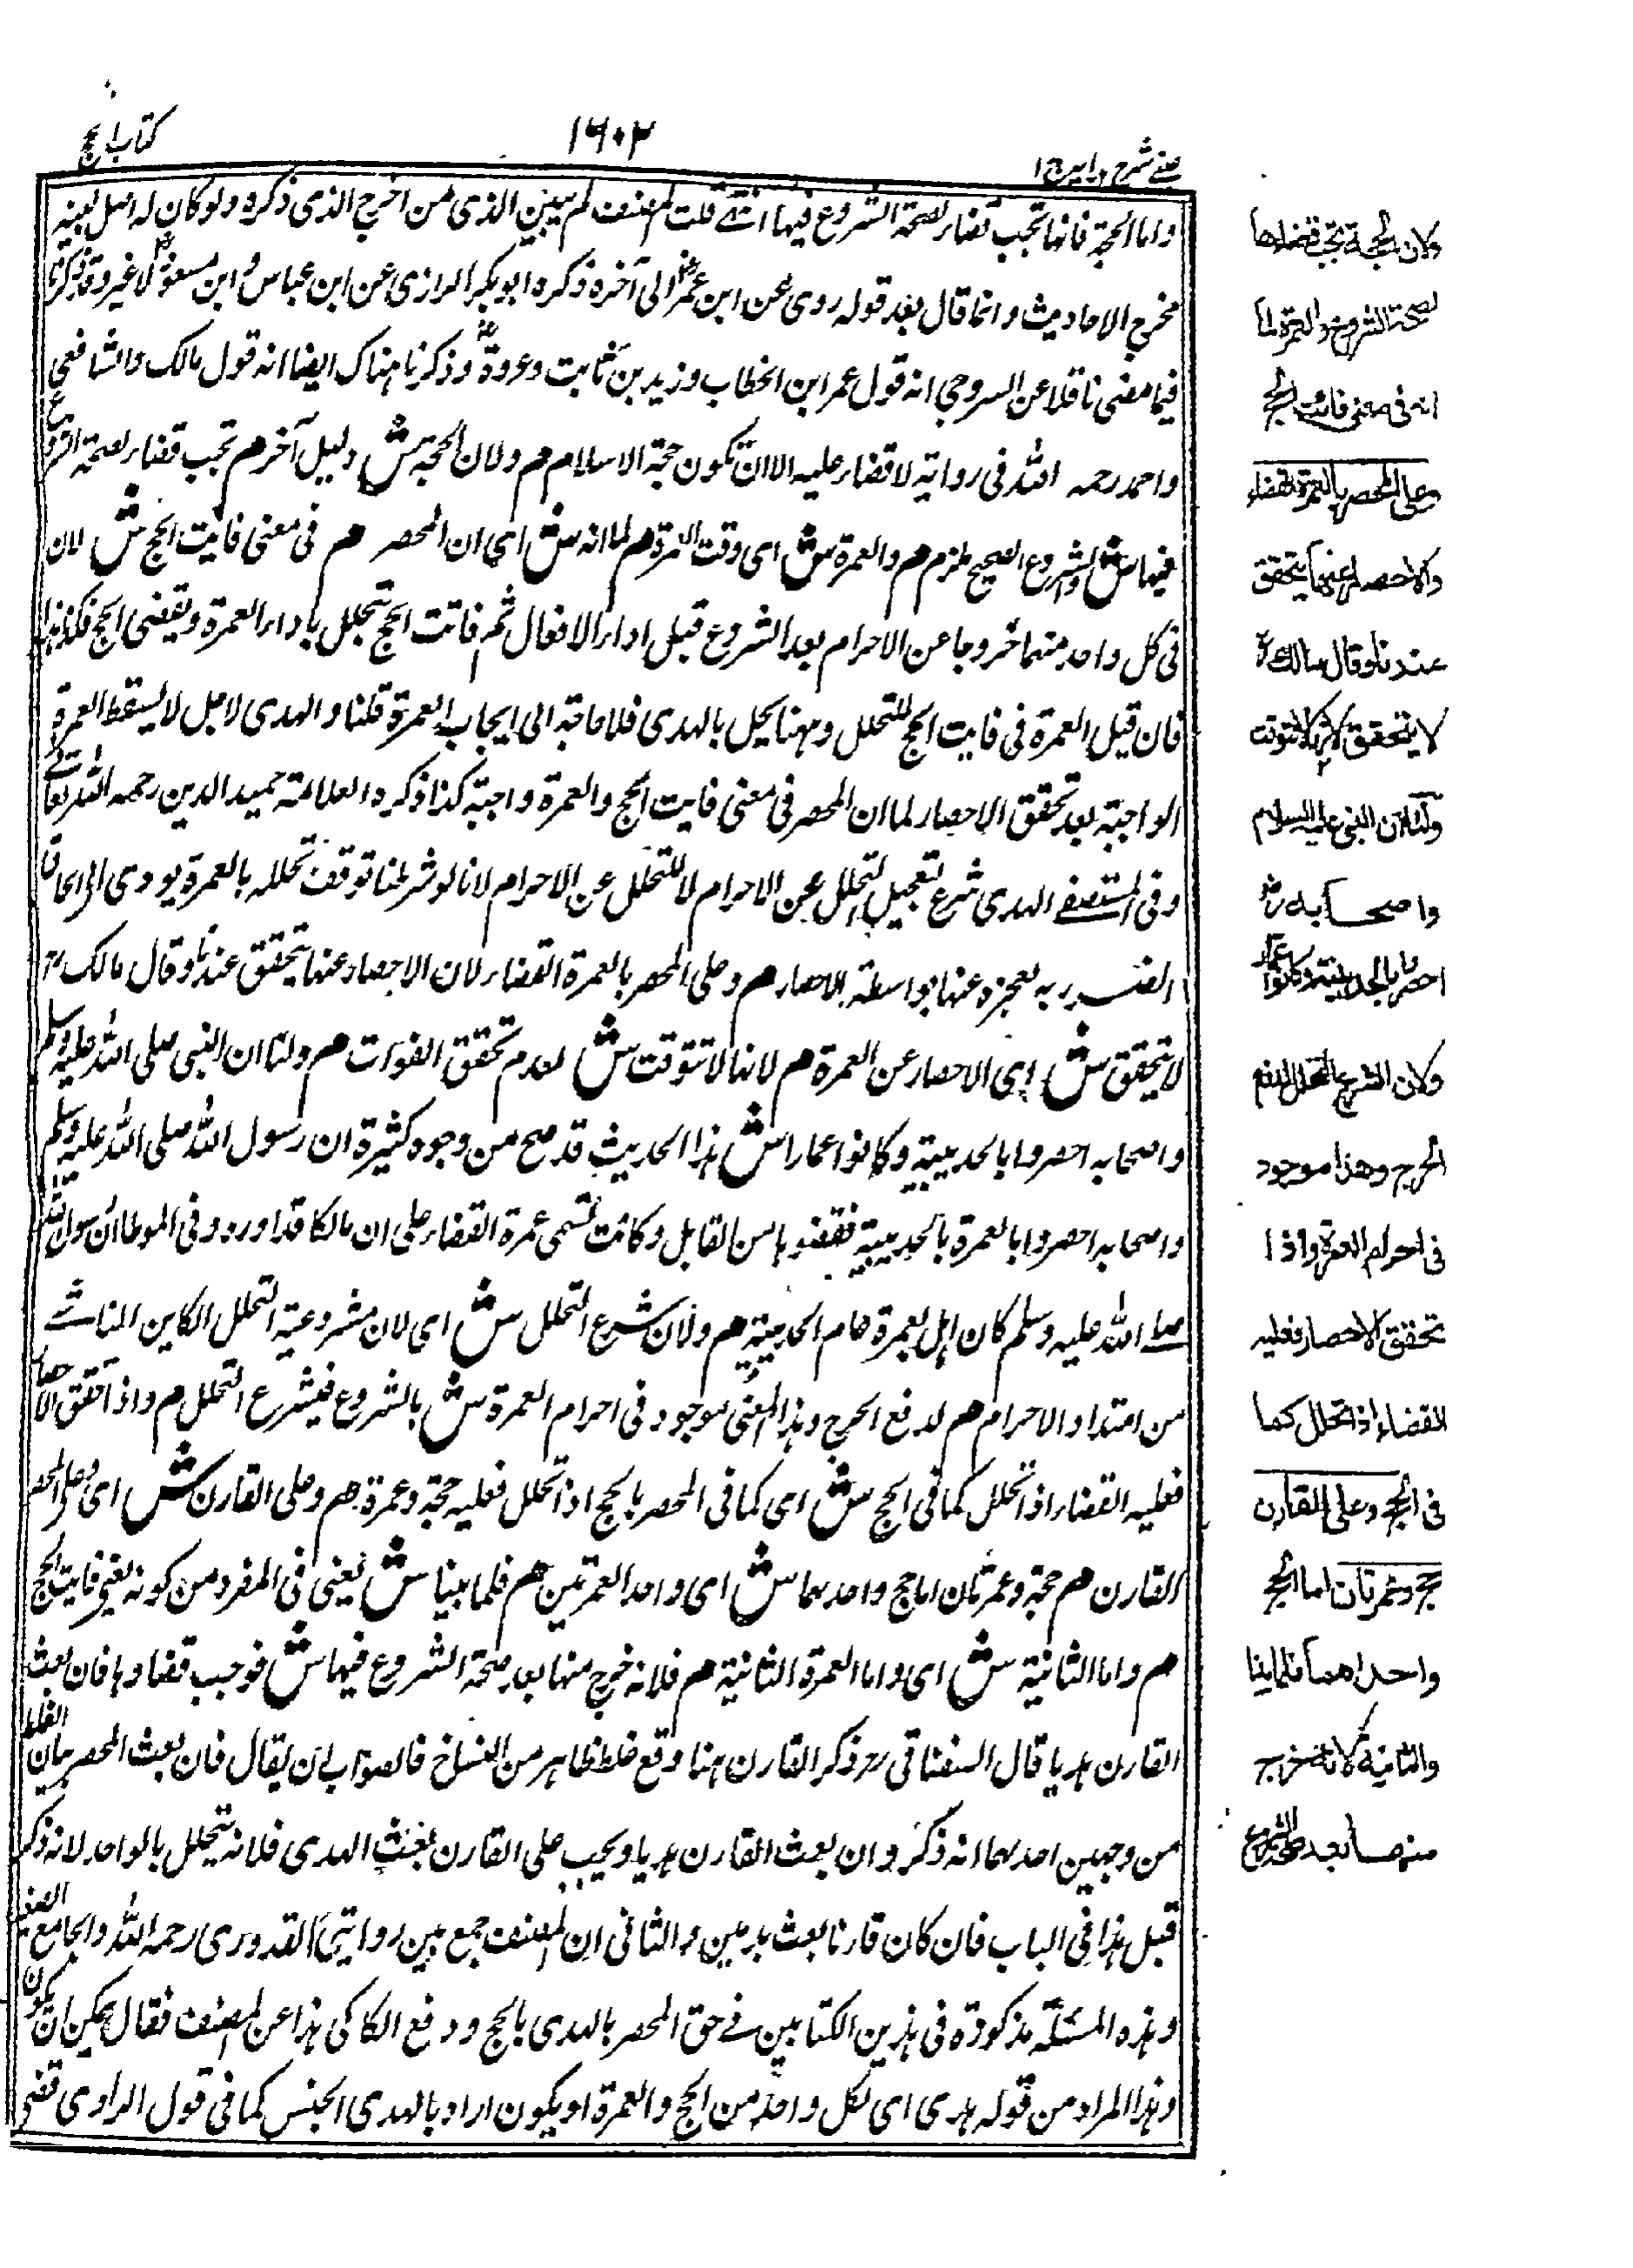 كتاب الحج
١٦٠٢
عينى شرح هدايه ج ١
واما الحجة فانها تجب قضاء لصحة الشروع فيها انتهى قلت المصنف لم يبين الذى من اخرج الذى ذكره ولو كان له اصل لبينه
مخرج الاحاديث وانما قال بعد قوله روى عن ابن عمر الى آخره ذكره ابوبكر الرازى عن ابن عباس وابن مسعود لا غير وقد ذكرنا
فيما مضى ناقلا عن السروجى انه قول عمر ابن الخطاب وزيد بن ثابت وعروة وذكرنا هناك ايضا انه قول مالك والشافعى
واحمد رحمه الله فى رواية لا قضاء عليه الا ان تكون حجة الاسلام م ولان الحجة ش دليل آخر م تجب قضاء لصحة الشروع
فيها ش والشروع الصحيح ملزم م والعمرة ش اى وقت العمرة م لما انه ش اى ان المحصر م فى معنى فايت الحج ش لان
فى كل واحد منهما خروجا عن الاحرام بعد الشروع قبل اداء الافعال ثم فائت الحج يتحلل باداء العمرة ويقضى الحج فكذا هذا
فان قيل العمرة فى فايت الحج للتحلل وههنا يحل بالهدى فلا حاجة الى ايجاب العمرة قلنا والهدى لاجل لا يسقط العمرة
الواجبة بعد تحقق الاحصار لما ان المحصر فى معنى فايت الحج والعمرة واجبة كذا ذكره العلامة حميد الدين رحمه الله تعالى
وفى المستصفى الهدى شرع لتعجيل التحلل عن الاحرام لا للتحلل عن الاحرام لانا لو شرطنا توقف تحلله بالعمرة يودى الى الحاق
الضرر به لعجزه عنها بواسطة الاحصار م وعلى المحصر بالعمرة القضاء لان الاحصار عنها يتحقق عندنا وقال مالك
لا يتحقق ش اى الاحصار عن العمرة م لانها لا تتوقت ش لعدم تحقق الفوات م ولنا ان النبى صلى الله عليه وسلم
واصحابه احصروا بالحديبية وكانوا عمارا ش هذا الحديث قد صح من وجوه كثيرة ان رسول الله صلى الله عليه وسلم
واصحابه احصروا بالعمرة بالحديبية فقضوها من القابل وكانت تسمى عمرة القضاء على ان مالكا قد اورد فى الموطا ان رسول الله
صلى الله عليه وسلم كان اهل بعمرة عام الحديبية م ولان شرع التحلل ش اى لان مشروعية التحلل الكاين الناشى
من امتداد الاحرام م لدفع الحرج وهذا المعنى موجود فى احرام العمرة ش بالشروع فيشرع التحلل م واذا تحقق الاحصار
فعليه القضاء اذا تحلل كما فى الحج ش اى كما فى المحصر بالحج اذا تحلل فعليه حجة وعمرة م وعلى القارن ش اى وعلى المحصر
القارن م حجة وعمرتان اما حج واحدهما ش اى واحد العمرتين م فلما بينا ش يعنى فى المفرد من كونه بمعنى فايت الحج
م واما الثانية ش اى واما العمرة الثانية م فلانه خرج منها بعد صحة الشروع فيها ش فوجب قضاوها فان بعث
القارن هديا قال السغناقى رح ذكر القارن هنا وقع غلط ظاهر من النساخ فالصواب ان يقال فان بعث المحصر بيان الغلط
من وجهين احدهما انه ذكر وان بعث القارن هديا ويجب على القارن بعث الهدى فلانه يتحلل بالواحد لانه ذكر
قبل هذا فى الباب فان كان قارنا بعث بدمين والثانى ان المصنف جمع بين روايتى القدورى رحمه الله والجامع الصغير
وهذه المسئلة مذكورة فى هذين الكتابين فى حق المحصر بالهدى بالحج ودفع الكاكى هذا عن المصنف فقال يمكن ان يكون
وهذا المراد من قوله هدى اى لكل واحد من الحج والعمرة او يكون اراد بالهدى الجنس كما فى قول الراوى قضى
ولان الحجة تجب قضاءها
لصحة الشروع والعمرة لما
انه فى معنى فائت الحج
وعلى المحصر بالعمرة القضاء
والاحصار عنها يتحقق
عندنا وقال مالك رح
لا يتحقق لانها لا تتوقت
ولنا ان النبى عليه السلام
واصحابه رض
احصروا بالحديبية وكانوا عمارا
ولان الشرع التحلل لدفع
الحرج وهذا موجود
فى احرام العمرة واذا
تحقق الاحصار فعليه
القضاء اذا تحلل كما
فى الحج وعلى القارن
حج وعمرتان اما الحج
واحداهما فلما بينا
والثانية لانه خرج
منها بعد صحة الشروع